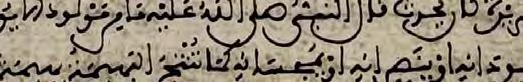 كان يحدث قال النبي صلى الله عليه ما من مولود
يهودانه او ينصرانه او يمجسانه كما تنتج البهيمة بهيمة